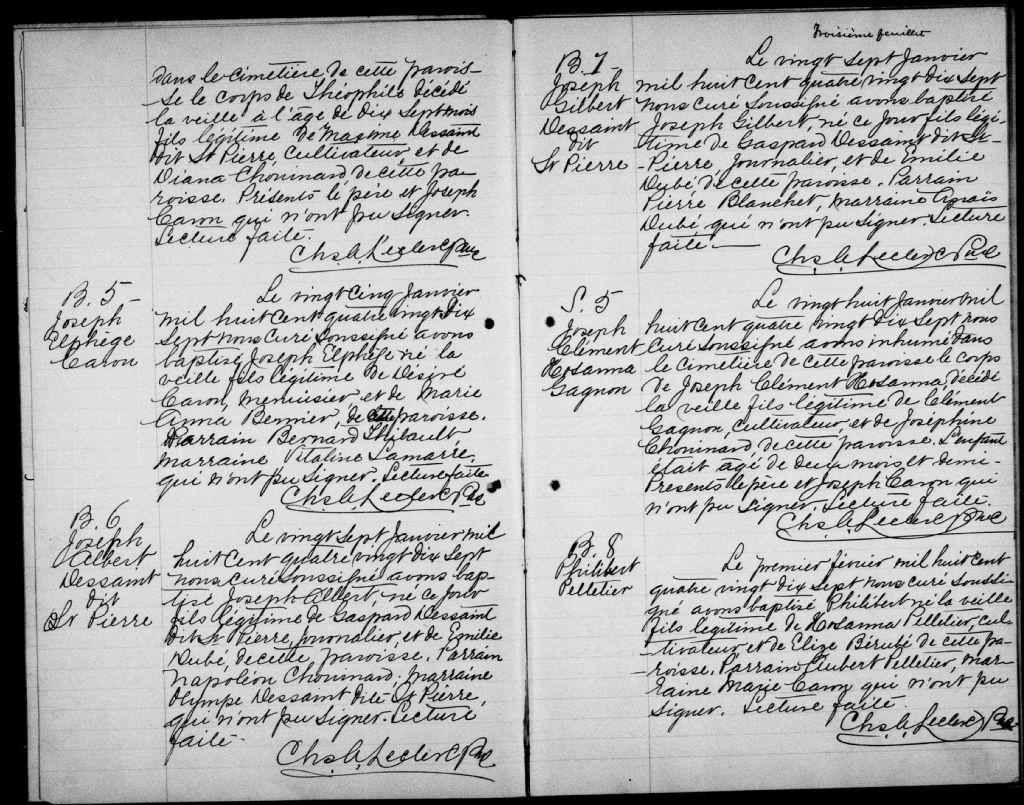 dans le cimetière de cette parois-
se le corps de Théophile décédé
la veille à l'âge de dix sept mois
fils légitime de Maxime Dessaint
dit St Pierre, cultivateur, et de
Diana Chouinard de cette pa-
roisse. Présents le père et Joseph
Caron qui n'ont pu signer.
Lecture faite.
Chs. A. Leclerc Ptre
B. 5
Joseph
Elphège
Caron
Le vingt cinq Janvier
mil huit cent quatre vingt dix
sept nous curé soussigné avons
baptisé Joseph Elphège né la
veille fils légitime de Désiré
Caron, menuisier et de Marie
Anna Bernier, de cette paroisse.
Parrain Bernard Thibault,
marraine Vitaline Lamarre,
qui n'ont pu signer. Lecture faite
Chs. A. Leclerc Ptre
B. 6
Joseph
Albert
Dessaint
dit
St Pierre
Le vingt sept Janvier mil
huit cent quatre vingt dix sept
nous curé soussigné avons bap-
tisé Joseph Albert, né ce jour
fils légitime de Gaspard Dessaint
dit St Pierre, journalier, et de Emilie
Dubé de cette paroisse. Parrain
Napoléon Chouinard, Marraine
Olympe Dessaint dite St Pierre,
qui n'ont pu signer. Lecture
faite.
Chs. A. Leclerc Ptre
Troisième feuillet
B. 7
Joseph
Gilbert
Dessaint
dit
St Pierre
Le vingt sept Janvier
mil huit cent quatre vingt dix sept
nous curé soussigné avons baptisé
Joseph Gilbert, né ce jour fils légi-
time de Gaspard Dessaint dit St-
Pierre journalier, et de Emilie
Dubé de cette paroisse. Parrain
Pierre Blanchet, Marraine
Dubé, qui n'ont pu signer. Lecture
faite.
Chs. A. Leclerc Ptre
S. 5
Joseph
Clément
Hosanna
Gagnon
Le vingt huit Janvier mil
huit cent quatre vingt dix sept nous
curé soussigné avons inhumé dans
le cimetière de cette paroisse le corps
de Joseph Clément Hosanna, décédé
la veille fils légitime de Clément
Gagnon, cultivateur, et de Joséphine
Chouinard, de cette paroisse. L'enfant
était agé de deux mois et demi-
Présents le père et Joseph Caron qui
n'ont pu signer. Lecture faite.
Chs. A. Leclerc Ptre
B. 8
Philibert
Pelletier
Le premier février mil huit cent
quatre vingt dix sept nous curé soussi-
gné avons baptisé Philibert né la veille
fils légitime de Hosanna Pelletier, cul-
tivateur, et de Elize Bérubé de cette pa-
roisse. Parrain Aubert Pelletier, mar-
raine Marie Caron qui n'ont pu
signer. Lecture faite.
Chs. A. Leclerc Ptre